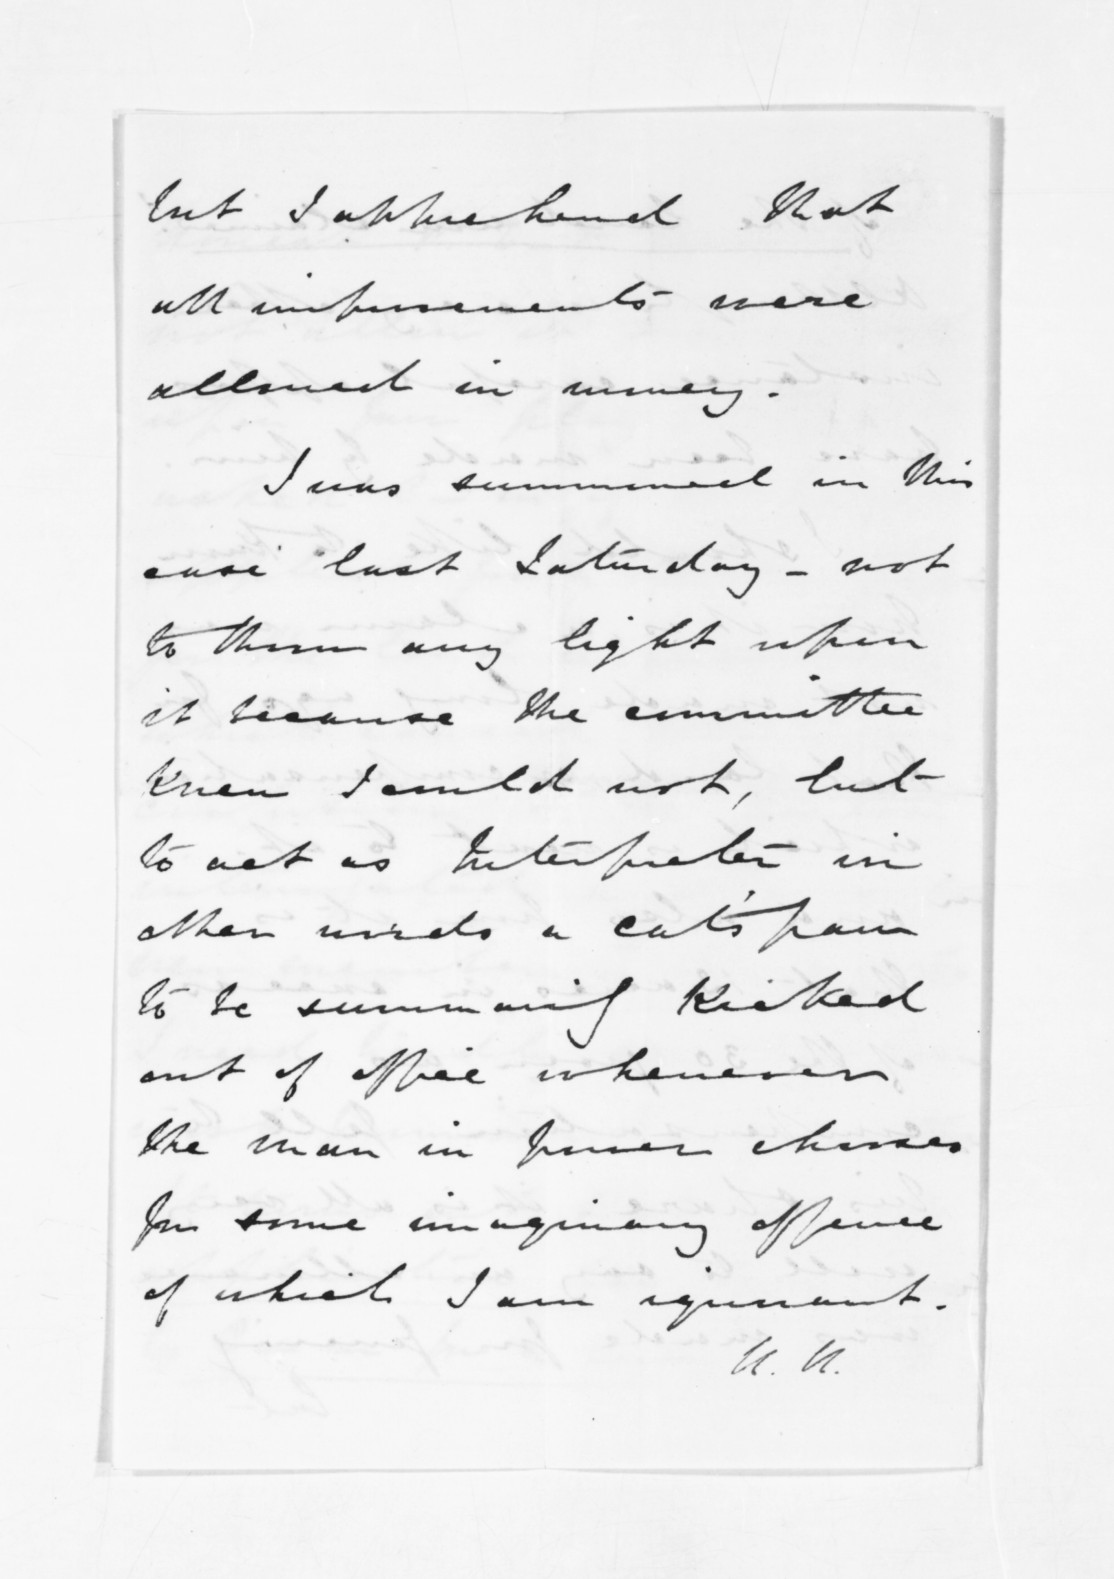 but I apprehend that
all improvements were
allowed in money.
I was summoned in this
case last Saturday - not
to throw any light upon
it because the committee
Knew I could not, but
to act as Interpreter in
other words a cat's paw
to be summarily Kicked
out of office whenever
the man in power chooses
for some imaginary offence
of which I am ignorant.